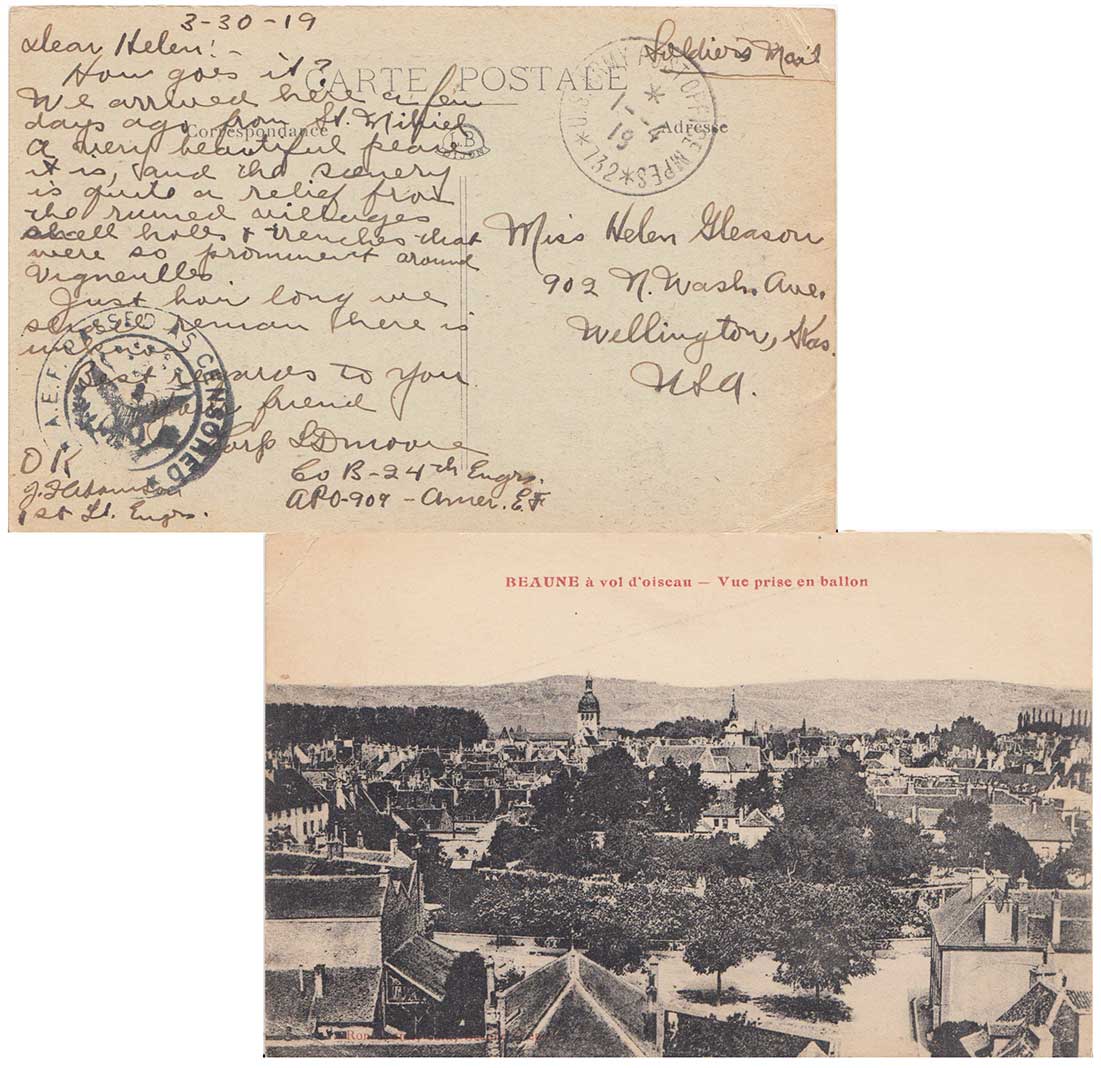 3-30-19
Dear Helen!-
How goes it?
We arrived here a few
days ago from St. Mihiel
a very beautiful place
it is, and the scenery
is quite a relief from
the ruined villages
shell holes & trenches that
were so prominent around
Vigneulles
Just how long we
shall remain there is
Best regards to you
Your friend
Corp L D Moore
Co B-24th Engrs.
APO-909-Amer. E.F
OK
1st Lt. Engrs.
CARTE POSTALE
Correspondance
Adresse
Soldier's Mail
U.S. ARMY POST OFFICE MPES *727*
1-4
19
Miss Helen Gleason
902 N. Wash. Ave.
Wellington, Kas.
USA.
A.E.F. PASSED AS CENSORED
BEAUNE à vol d'oiseau — Vue prise en ballon